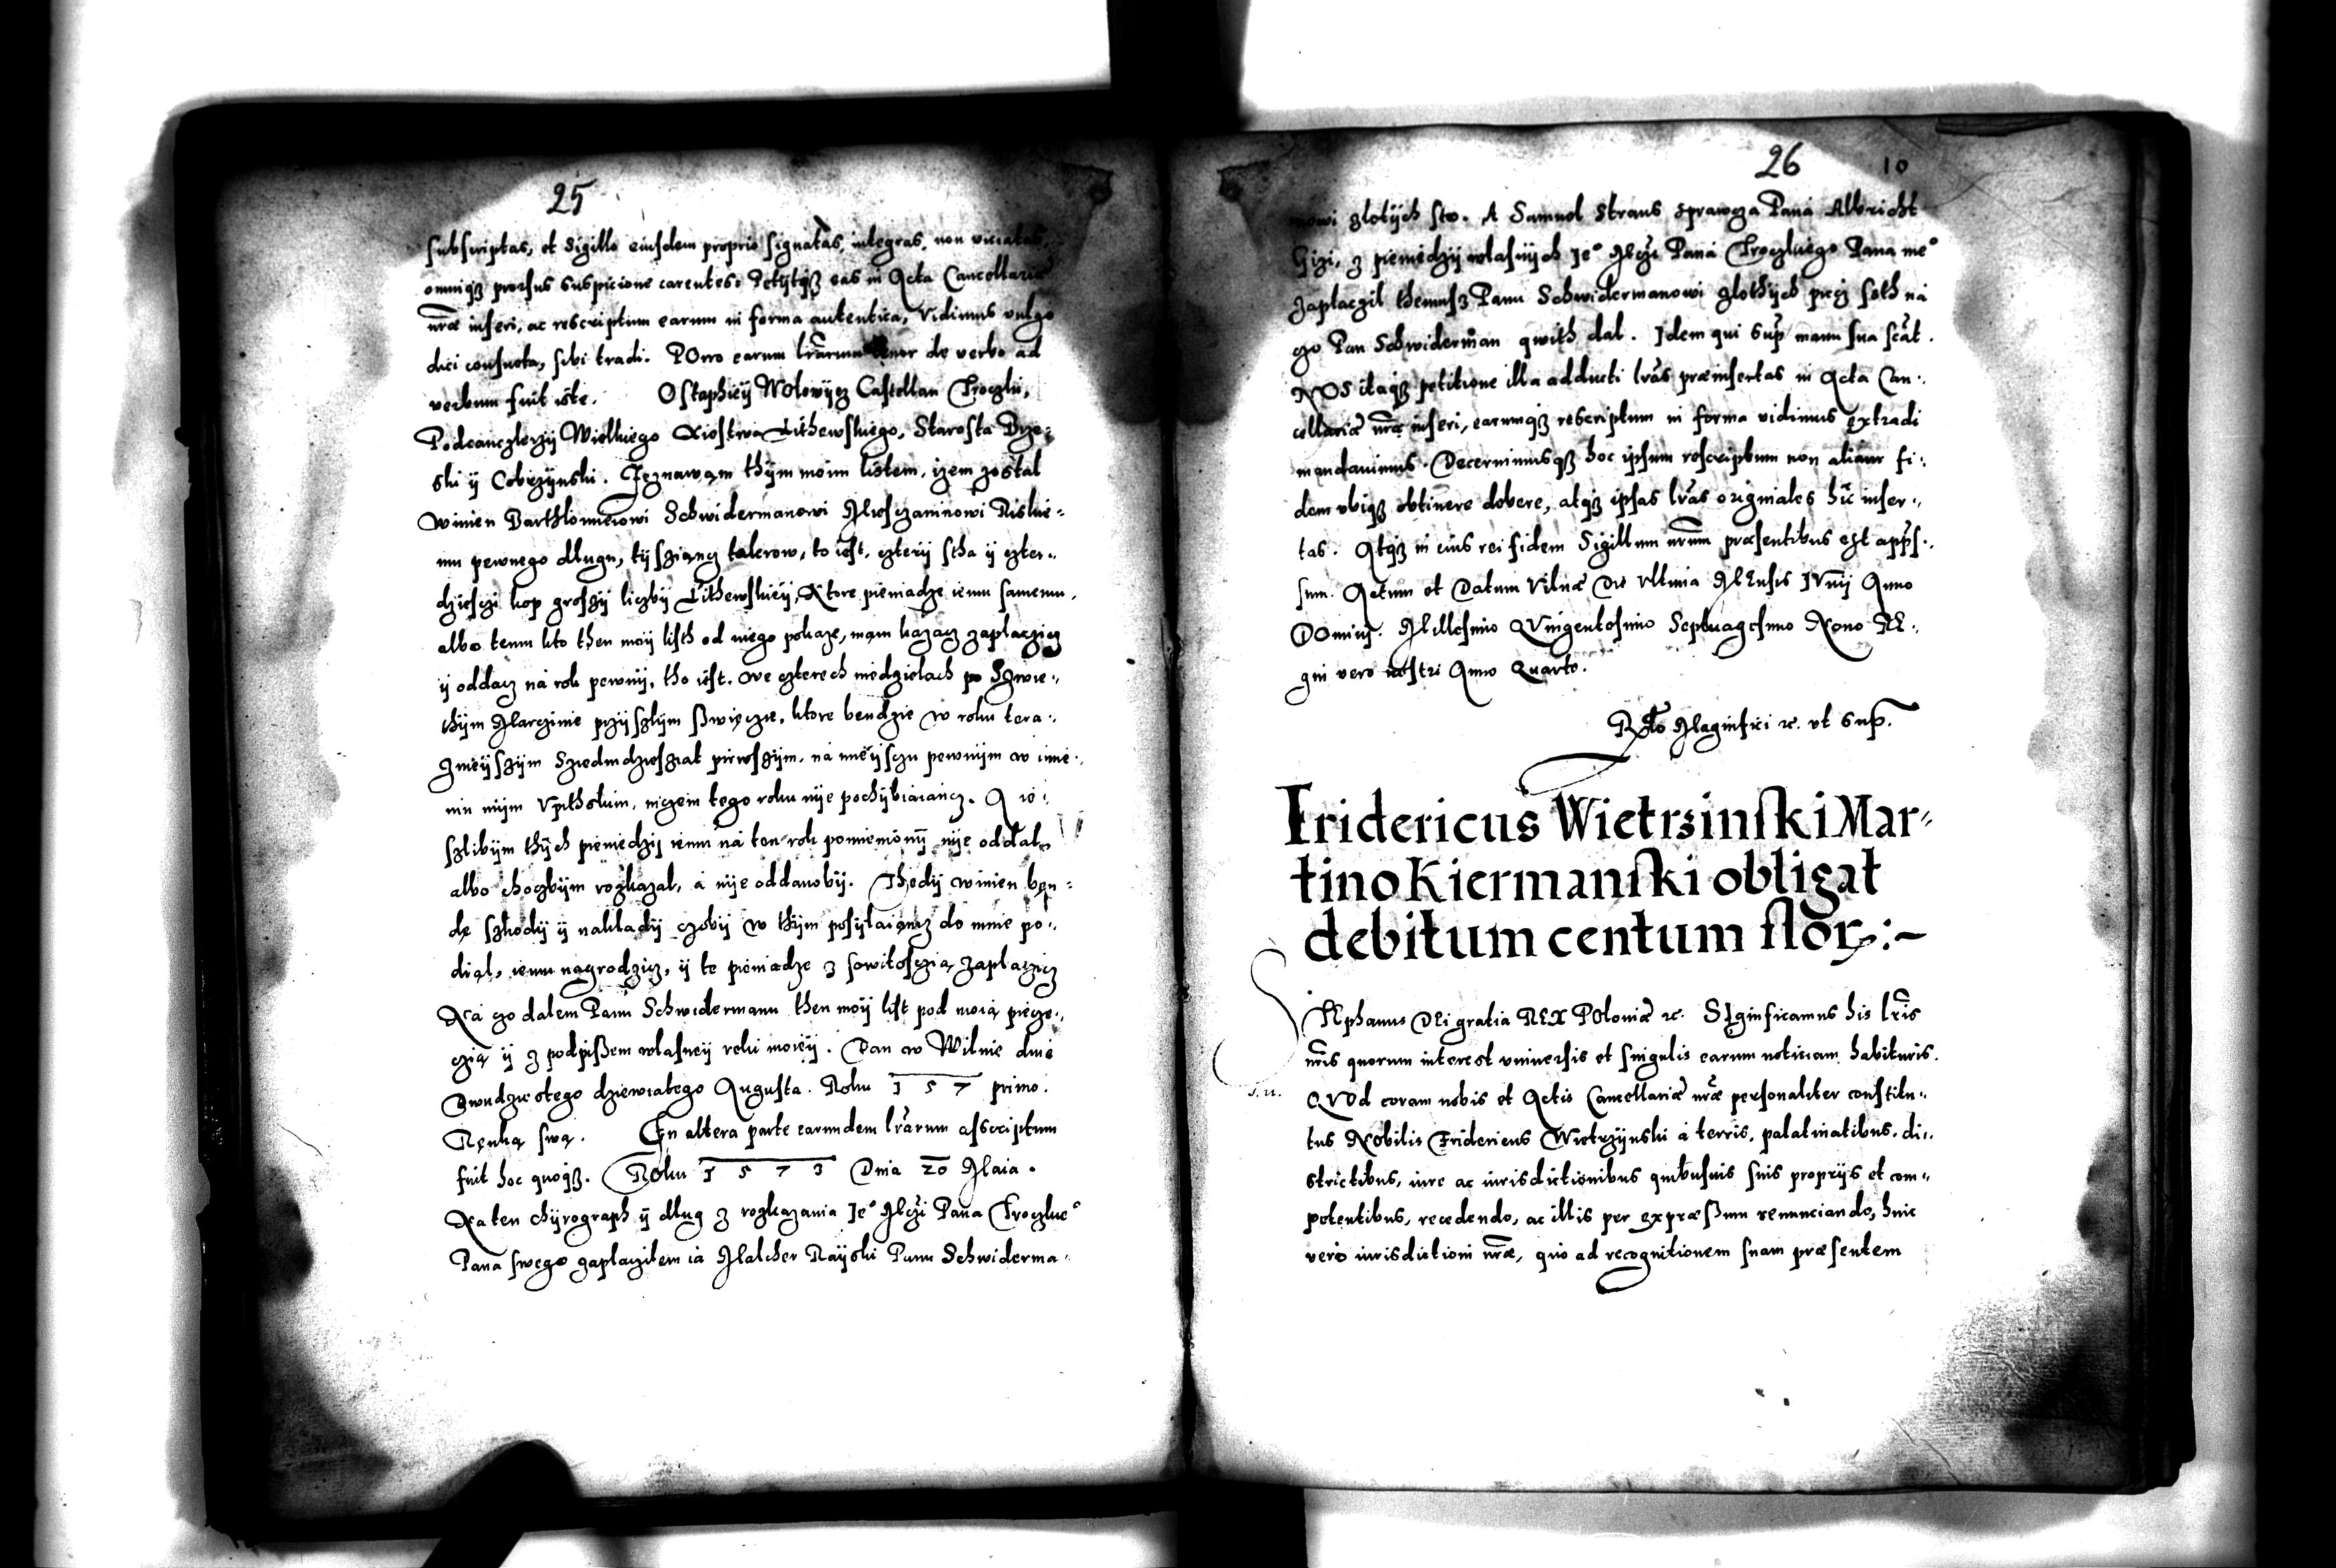 25
subscriptas, et Sigillo eiusdem proprio signatas, integras, non viciatas,
omniqȝ prorsus suspicione carentes. Petijtqȝ eas in Acta Cancellariæ
nr̃æ inseri, ac rescriptum earum in forma autentica, Vidimus vulgo
dici consueta, sibi tradi. POrro earum lr̃arum tenor de verbo ad
verbum fuit iste. Ostaphieÿ Wolowÿcz Castellan Troczki,
Podcanczlerzÿ Wielkiego Xiostwa Lithewskiego, Starosta Brze-
ski ÿ Cobrzÿnski. Zeznawam thÿm moim listem, izem zostal
winien Barthlomieiowi Schwidermanowi Miesczaninowi Riskie-
mu pewnego dlugu, tÿsziancz talerow, to iest, czterÿ stha ÿ czter-
dziesczi kop groszÿ liczbÿ Lithewskieÿ, Ktore pieniadze iemu samemu,
albo temu kto then moÿ listh od niego pokaze, mam kazacz zaplaczicz
ÿ oddacz ná rok pewnÿ, tho iest. we czterech niedzielach po Szwie-
thÿm Marczinie przÿszlÿm swięczie, ktore bendzie w roku tera-
znieÿszÿm Sziedmdziesziat pierwszÿm, ná mieÿsczu pewnÿm w imie-
niu mÿm Vpithskim, niczem tego roku nÿe pochÿbiaiancz. A ie-
szlibÿm thÿch pieniedzÿ iemu ná ten rok pomieniónÿ nÿe oddal,
albo choczbÿm rozkazal, á nÿe oddanobÿ. Thedÿ winien ben-
dę szkodÿ ÿ nakladÿ czobÿ w thÿm posÿlaiancz do mnie po-
dial, iemu nagrodzicz, ÿ te pieniadze z sowitoscią zaplaczicz
Ná czo dalem Panu Schwidermanu then moÿ list pod moią piecze-
czią ÿ z podpisem wlasneÿ reki moieÿ. Dan w Wilnie dnie
Dwudziestego dziewiatego Augusta. Roku 1 5 7 primo.
Renką swą. In altera parte earundem lr̃arum asscriptum
fuit hoc quoqȝ. Roku 1 5 7 3 Dnia 20 Maia.
Na ten chÿrograph ÿ dlug z rozkazania Je° Msczi Pana Troczkie°
Pana swego zaplaczilem ia Malcher Raÿski Panu Schwiderma-
26 10
nowi zlotÿch sto. A Samuel Straus sprawcza Paná Albricht
Gizi, z pieniedzÿ wlasnÿch Je° Msczi Paná Troczkiego Pana me°
zaplaczil themusz Panu Schwidermanowi zlothÿch piecz seth ná
czo Pan Schwiderman qwith dal. Idem qui sup̃ manu sua scãt.
NOS itaqȝ petitione illa adducti lr̃as præinsertas in Acta Can-
cellariæ nr̃æ inseri, earumqȝ rescriptum in forma vidimus extradi
mandauimus. Decernimusqȝ hoc ipsum rescriptum non aliam fi-
dem vbiqȝ obtinere debere, atqȝ ipsas lr̃as originales hic inser-
tas. Atqȝ in eius rei fidem Sigillum nr̃um præsentibus est app̃s-
sum. Actum et Datum Vilnæ Die Vltima MEnsis IVnij Anno
DOmini. Millesimo QVingentesimo Septuagesimo Nono RE-
gni vero nostri Anno Quarto.
Rel̃o Magnifici &c. vt Sup̃.
Fridericus Wietrsinski Mar-
tino Kiermanski obligat
debitum centum flor.:–
STephanus DEi gratia REX POloniæ &c. SIgnificamus his lr̃is
nr̃is quorum interest vniuersis et singulis earum noticiam habituris.
QVOd coram nobis et Actis Cancellariæ nr̃æ personaliter constitu-
tus Nobilis Fridericus Wietrzÿnski á terris, palatinatibus, di-
strictibus, iure ac iurisdictionibus quibusuis suis proprijs et com-
petentibus, recedendo, ac illis per expræssum renunciando, huic
vero iurisdictioni nr̃æ, quo ad recognitionem suam præsentem